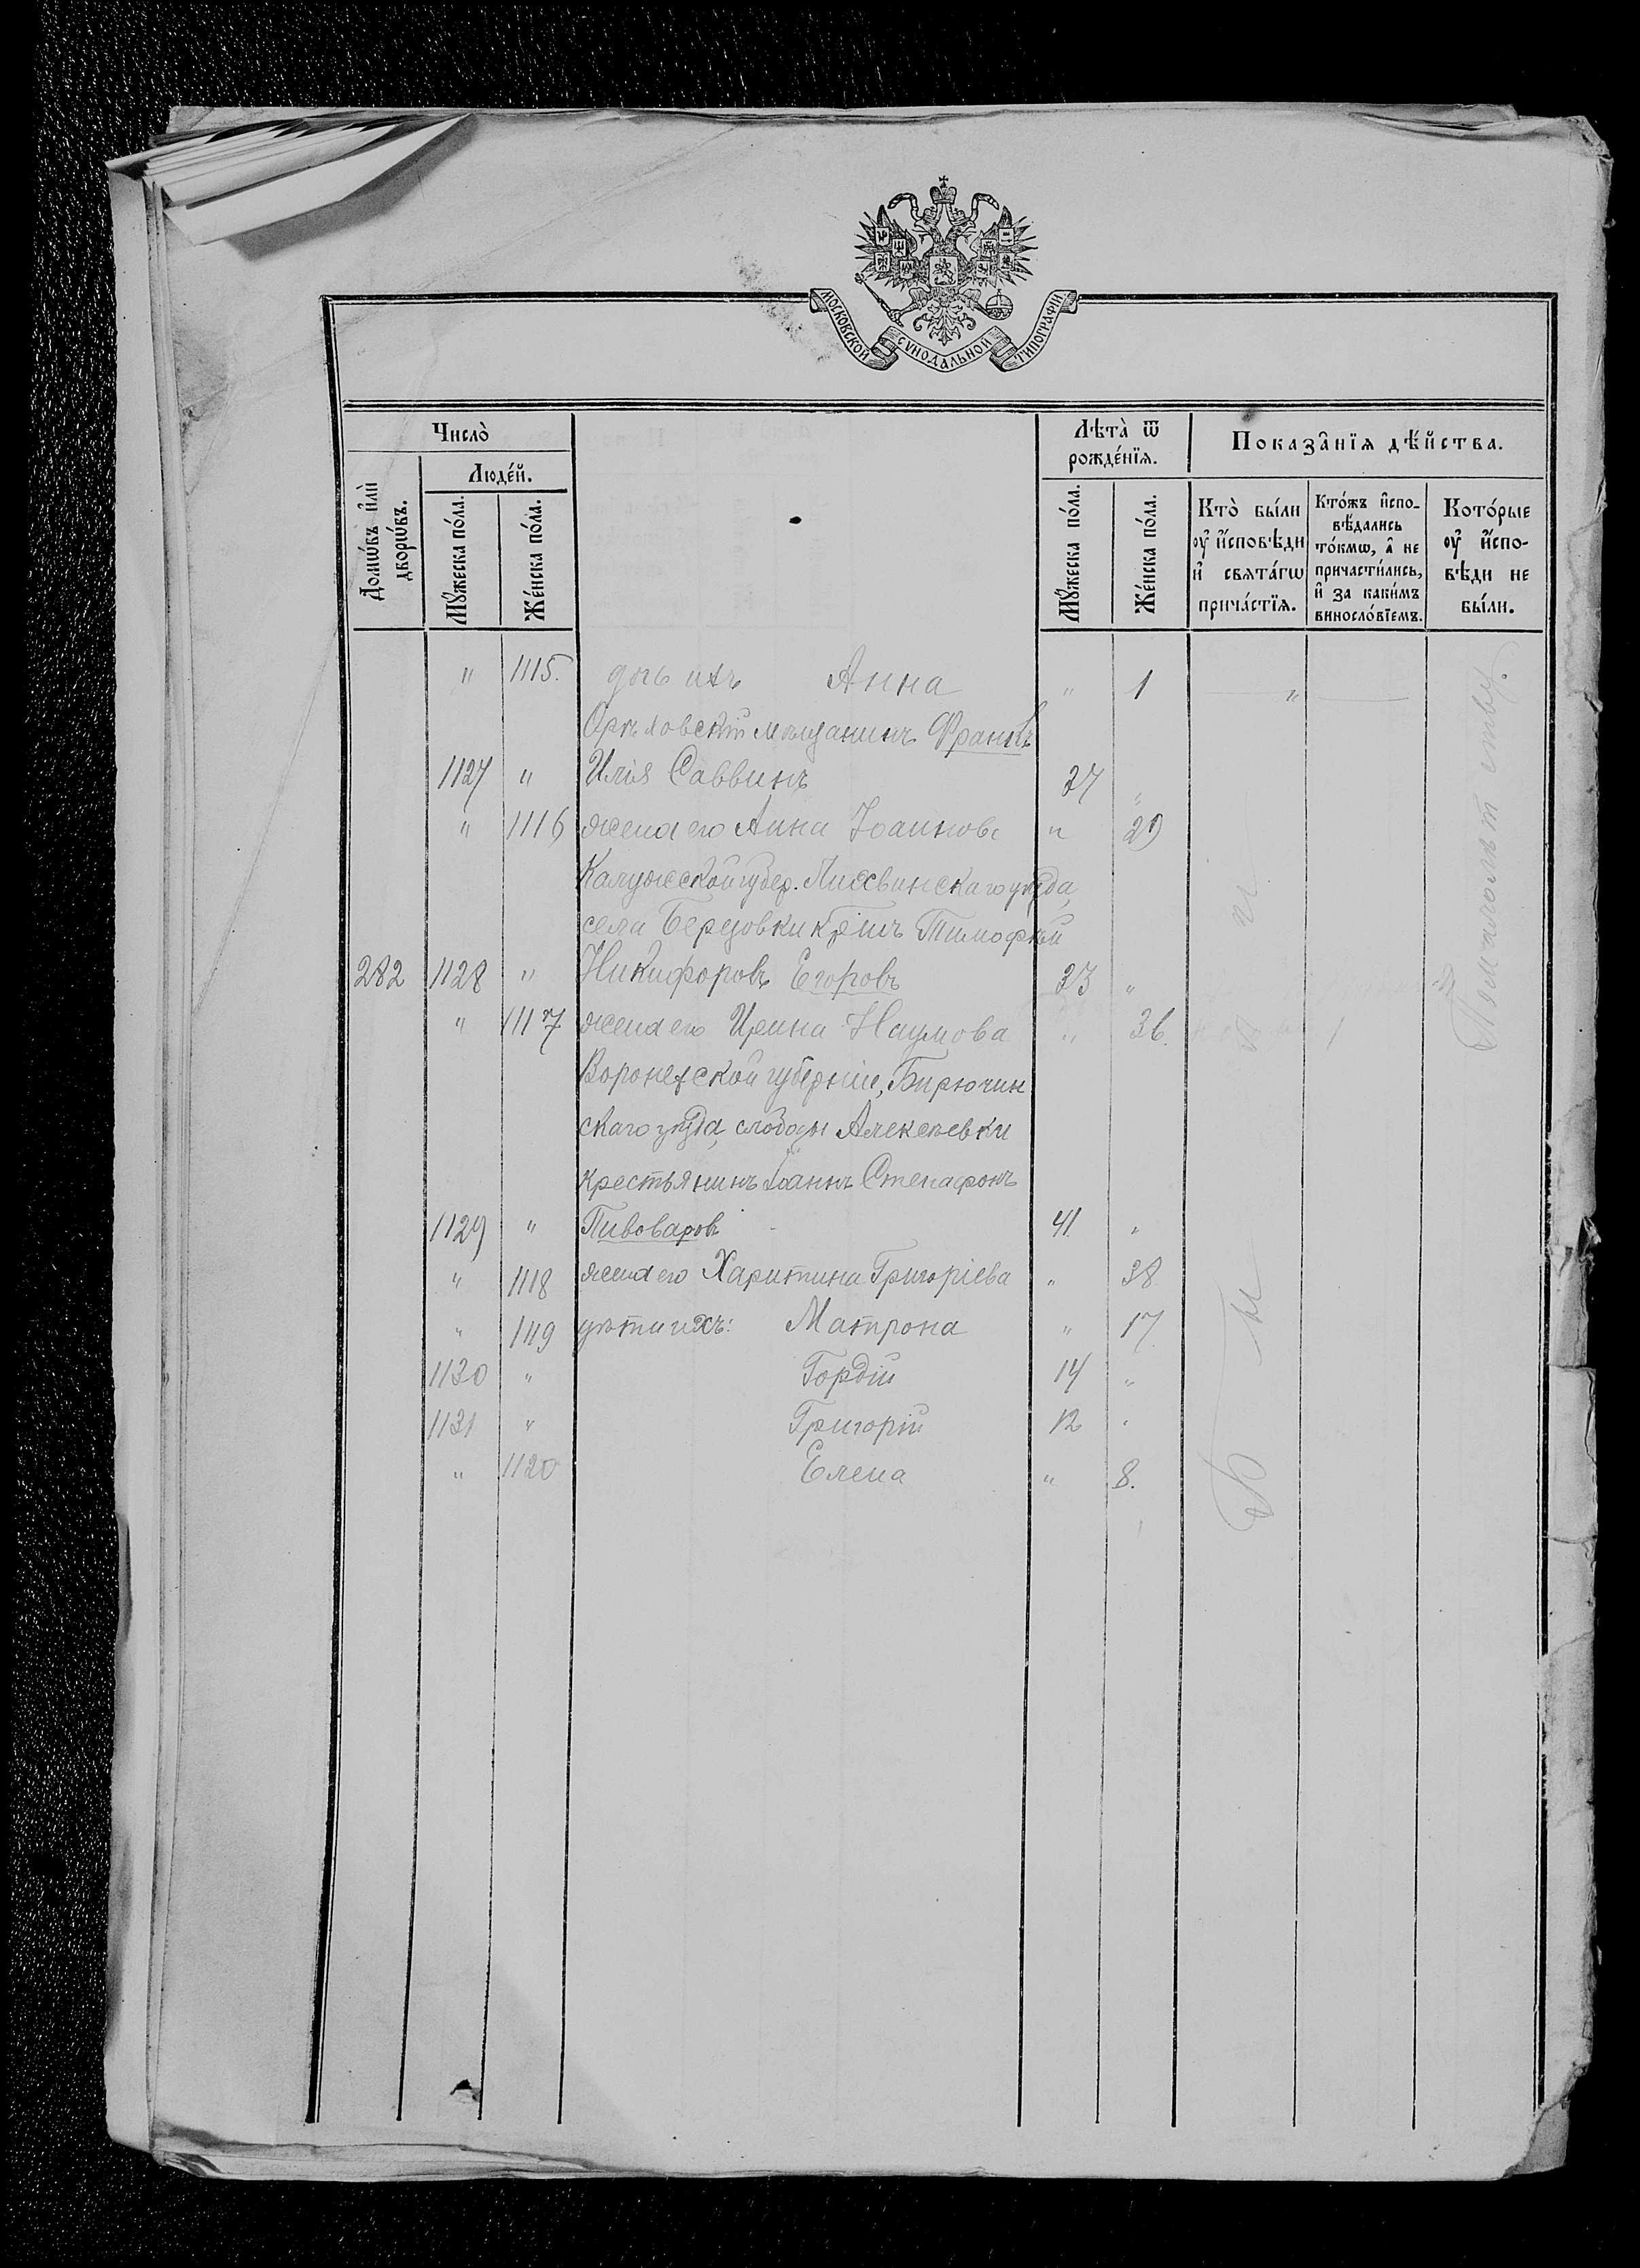 МОСКОВСКОЙ СѴНОДАЛЬНОЙ ТИПОГРАФІИ
Число̀
Людéй.
Домѡ́въ и҆лѝ дворѡ́въ.
Мꙋ́жеска пóла.
Жéнска пóла.
Лѣта̀ ѿ рождéнїѧ.
Мꙋ́жеска пóла.
Жéнска пóла.
Показа̑нїѧ дѣ́йства.
Кто̀ бы́ли ᲂу҆ и҆́сповѣди и҆ свѧта́гѡ прича́стїѧ.
Кто́жъ и҆спо-вѣ́дались то́кмѡ, а҆ не причасти́лись, и҆ за каки́мъ винослóвїемъ.
Котóрые ᲂу҆ и҆́спо-вѣди не бы́ли.
" 1115. дочь ихъ Анна " 1 "
Орѣховскій мѣщанинъ Францъ
1127 " Илія Саввинъ 27 "
" 1116 жена его Анна Іоаннова " 29
Калужской губер. Лихвинскаго уѣзда,
села Березовки кр̃нъ Тимофѣй
282 1128 " Никифоровъ Егоровъ 33 "
" 1117 жена его Ирина Наумова " 36.
Воронежской губерніи, Бирючин
скаго уѣзда, слободы Алексѣевки
крестьянинъ Іоаннъ Стефановъ
1129 " Пивоваровъ 41 "
" 1118 жена его Харитина Григоріева " 38
" 1119 дѣти ихъ: Матрона " 17
1130 " Гордій 14 "
1131 " Григорій 12 "
" 1120 Елена " 8.
Б ы л и